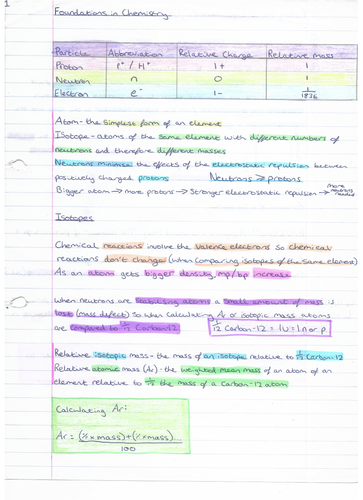 1
Foundations in Chemistry
Particle Abbreviation Relative Charge Relative mass
Proton P⁺ / H⁺ 1+ 1
Neutron n 0 1
Electron e⁻ 1- 1/1836
Atom - the simplest form of an element
Isotope - atoms of the same element with different numbers of
neutrons and therefore different masses
Neutrons minimise the effects of the electrostatic repulsion between
positively charged protons Neutrons ≥ protons
Bigger atom → more protons → Stronger electrostatic repulsion → more neutrons needed
Isotopes
Chemical reactions involve the valence electrons so chemical
reactions don't change (when comparing isotopes of the same element)
As an atom gets bigger density, mp/bp increase
When neutrons are stabilising atoms a small amount of mass is
lost (mass defect) so when calculating Ar or isotopic mass atoms
are compared to 1/12 Carbon 12. 1/12 Carbon-12 = 1U = 1n or p
Relative isotopic mass - the mass of an isotope relative to 1/12 Carbon-12
Relative atomic mass (Ar) - the weighted mean mass of an atom of an
element relative to 1/12 the mass of a Carbon-12 atom
Calculating Ar:
Ar = (% x mass) + (% x mass)
100